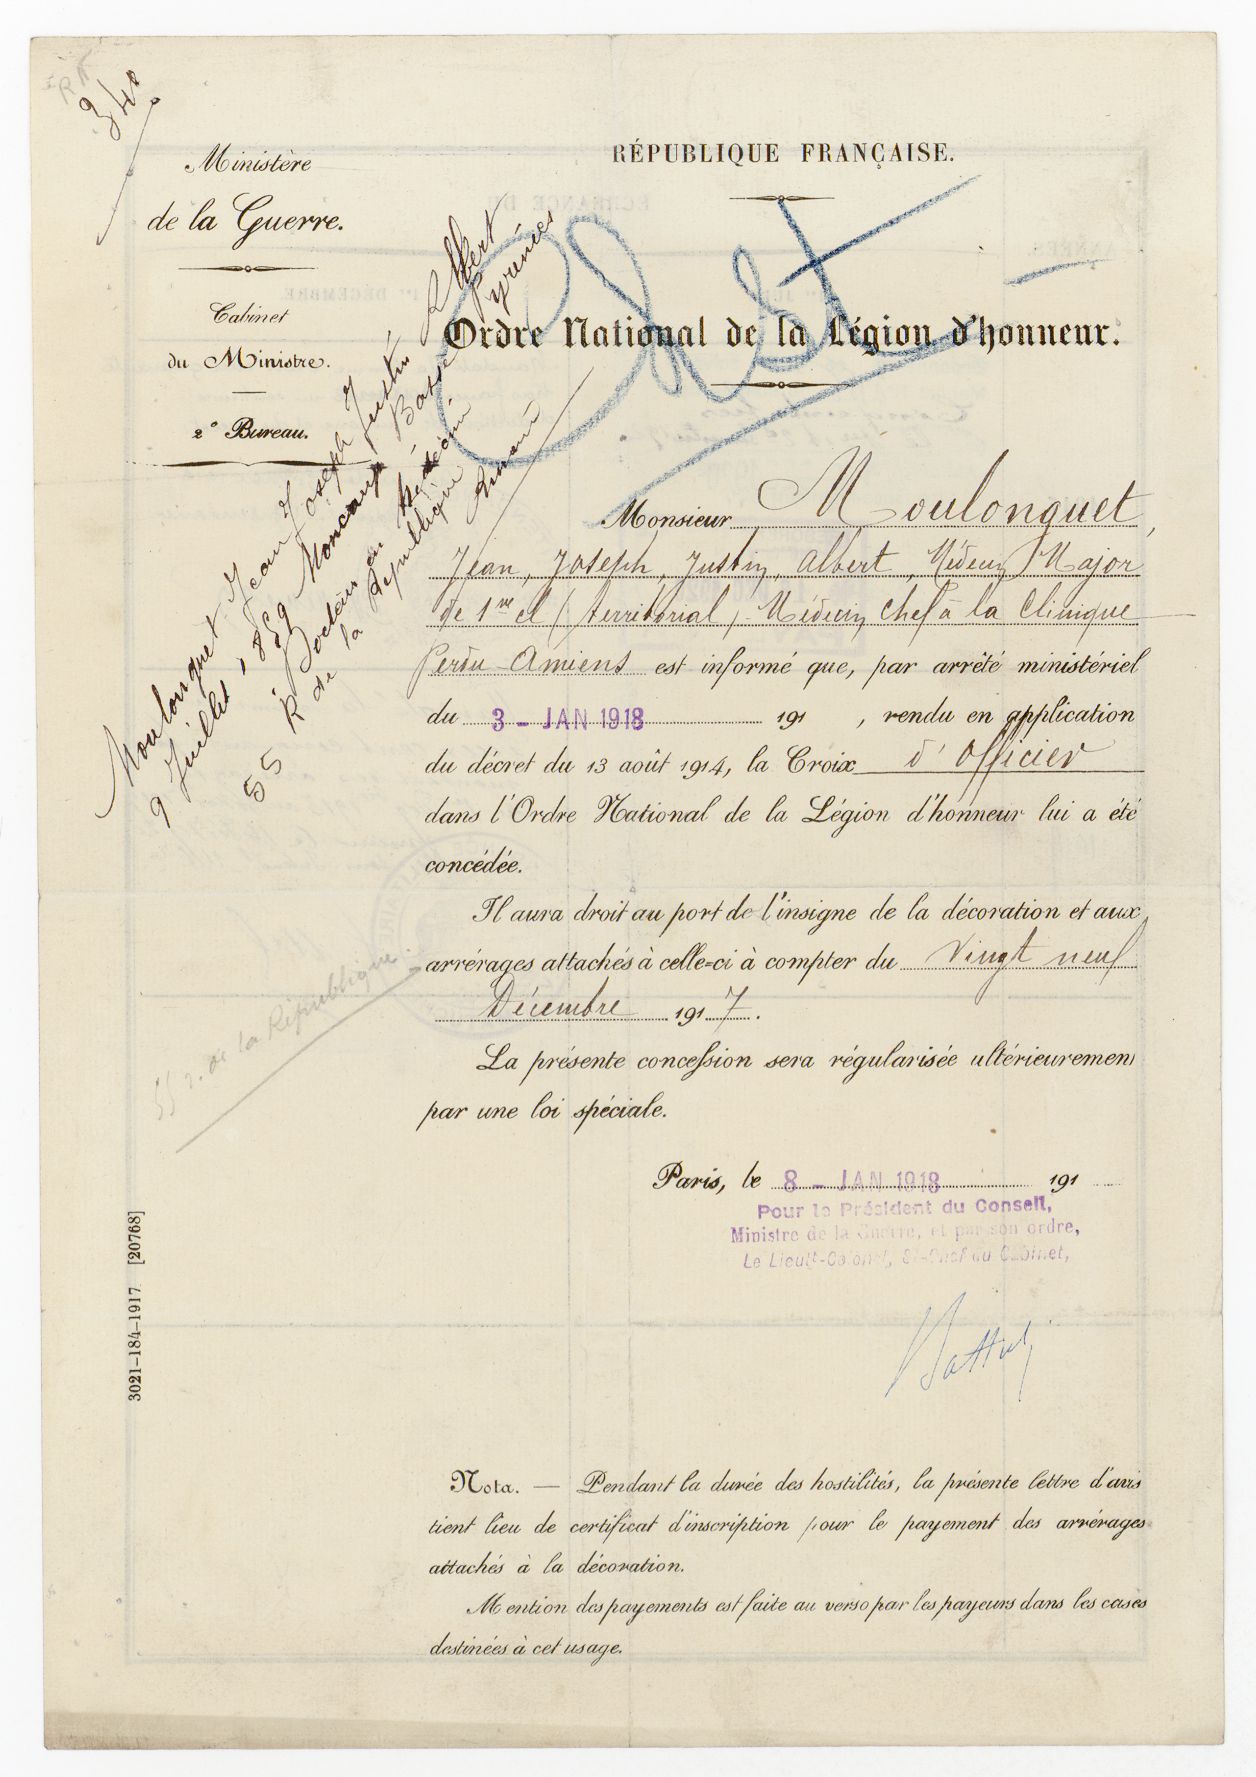 340
Ministère
de la Guerre.
Cabinet
du Ministre.
2e Bureau.
RÉPUBLIQUE FRANÇAISE.
Ordre National de la Légion d'honneur.
Moulonguet Jean Joseph Justin Albert
9 Juillet 1859 Moncaup Basses Pyrénées
Docteur en Médecine
55 R de la République Amiens
Monsieur Moulonguet,
Jean, Joseph, Justin, Albert, Médecin Major
de 1re cl (territorial) - Médecin Chef à la Clinique
Perdu - Amiens est informé que, par arrêté ministériel
du 3 - JAN 1918 191 , rendu en application
du décret du 13 août 1914, la Croix d'Officier
dans l'Ordre National de la Légion d'honneur lui a été
concédée.
Il aura droit au port de l'insigne de la décoration et aux
arrérages attachés à celle-ci à compter du Vingt neuf
Décembre 1917.
55 r. de la République
La présente concession sera régularisée ultérieurement
par une loi spéciale.
Paris, le 8 - JAN 1918 191
Pour le Président du Conseil,
Ministre de la Guerre, et par son ordre,
Le Lieutt-Colonel, S/-Chef du Cabinet,
3021-184-1917 [20768]
Nota. — Pendant la durée des hostilités, la présente lettre d'avis
tient lieu de certificat d'inscription pour le payement des arrérages
attachés à la décoration.
Mention des payements est faite au verso par les payeurs dans les cases
destinées à cet usage.